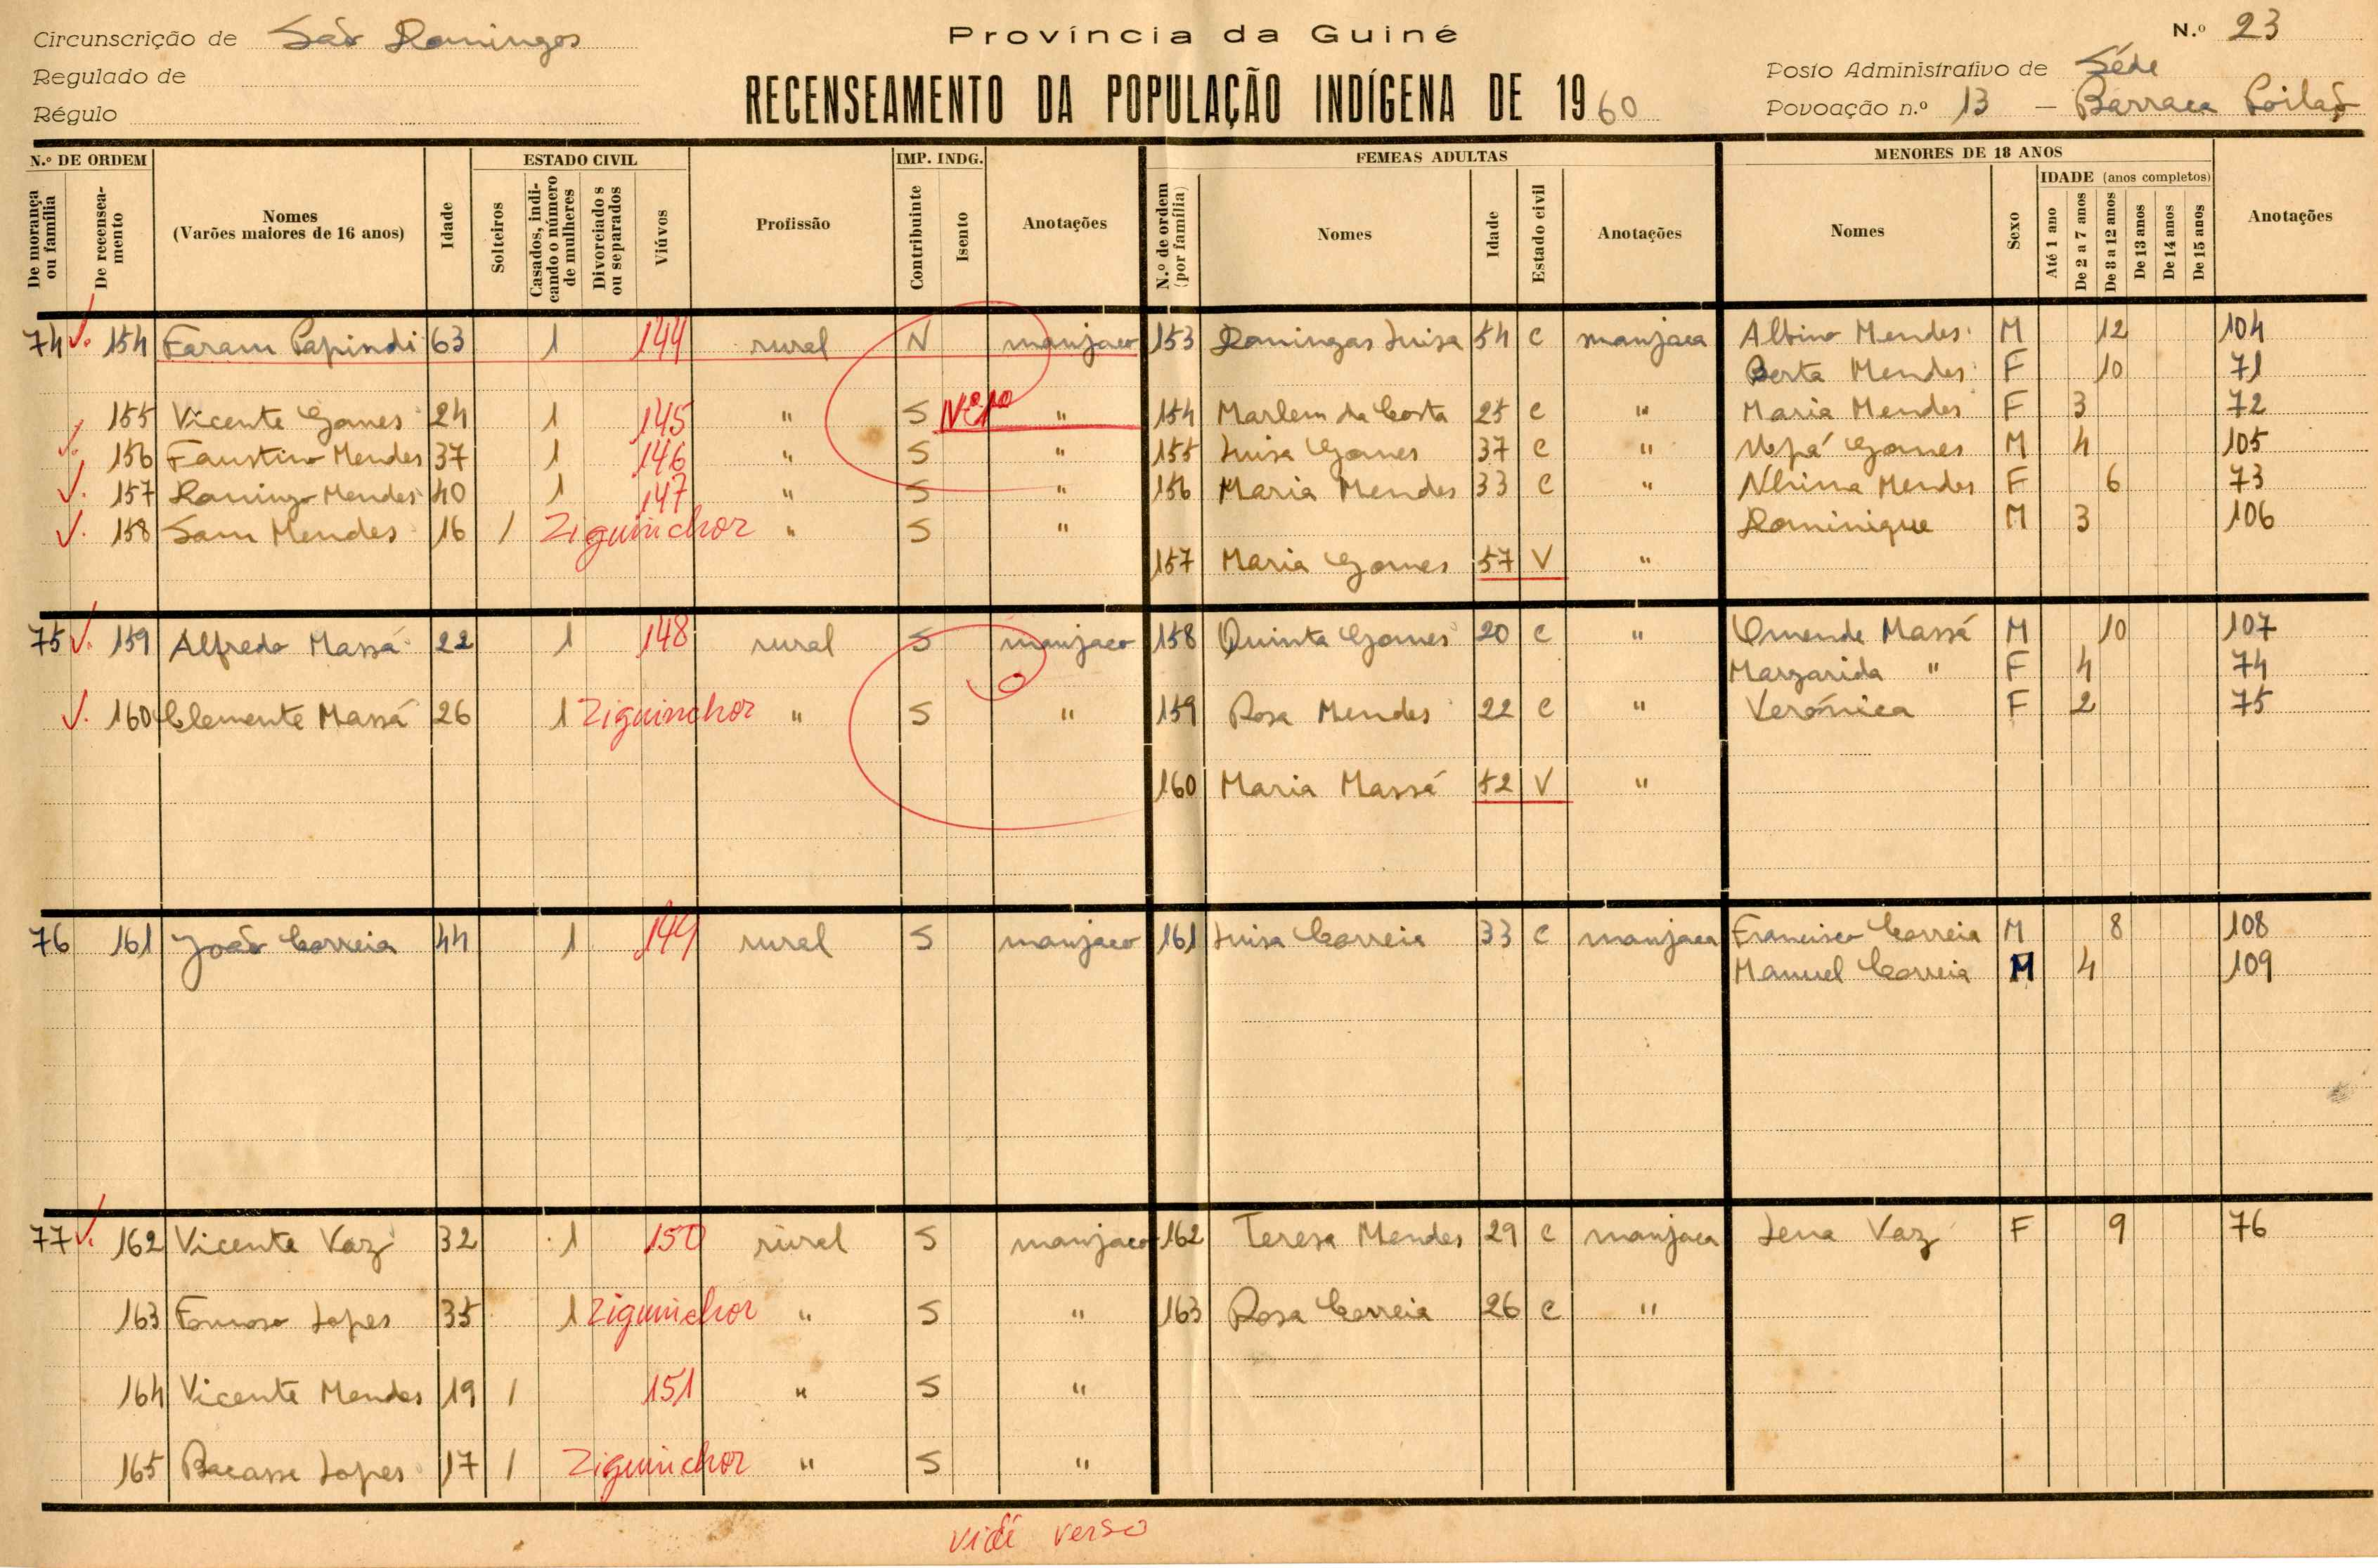 Circunscrição de São Domingos
Regulado de
Régulo
Província da Guiné
RECENSEAMENTO DA POPULAÇÃO INDÍGENA DE 1960
N.º 23
Posto Administrativo de Séde
Povoação n.º 13 — Barraca Poilão
N.º DE ORDEM
De morança ou família
De recenseamento
Nomes
(Varões maiores de 16 anos)
Idade
ESTADO CIVIL
Solteiros
Casados, indicando o número de mulheres
Divorciados ou separados
Viúvos
Profissão
IMP. INDG.
Contribuinte
Isento
Anotações
FEMEAS ADULTAS
N.º de ordem (por família)
Nomes
Idade
Estado civil
Anotações
MENORES DE 18 ANOS
Nomes
Sexo
IDADE (anos completos)
Até 1 ano
De 2 a 7 anos
De 8 a 12 anos
De 13 anos
De 14 anos
De 15 anos
Anotações
74 154 Faram Papindi 63 1 144 rural N manjaco 153 Domingas Luisa 54 C manjaca Albino Mendes M 12 104
Berta Mendes F 10 71
155 Vicente Gomes 24 1 145 " S " 154 Marlem da Costa 25 C " Maria Mendes F 3 72
156 Faustino Mendes 37 1 146 " S " 155 Luisa Gomes 37 C " Nepá Gomes M 4 105
157 Domingo Mendes 40 1 147 " S " 156 Maria Mendes 33 C " Nhima Mendes F 6 73
158 Sam Mendes 16 1 Ziguinchor " S " Dominique M 3 106
157 Maria Gomes 57 V "
75 159 Alfredo Massá 22 1 148 rural S manjaco 158 Quinta Gomes 20 C " Omende Massá M 10 107
Margarida " F 4 74
160 Clemente Massá 26 1 Ziguinchor " S " 159 Rosa Mendes 22 C " Verónica F 2 75
160 Maria Massá 52 V "
76 161 João Correia 44 1 149 rural S manjaco 161 Luisa Correia 33 C manjaca Francisco Correia M 8 108
Manuel Correia M 4 109
77 162 Vicente Vaz 32 1 150 rural S manjaco 162 Teresa Mendes 29 C manjaca Lena Vaz F 9 76
163 Lopes 35 1 Ziguinchor " S " 163 Rosa Correia 26 C "
164 Vicente Mendes 19 1 151 " S "
165 Bacasse Lopes 17 1 Ziguinchor " S "
vidé verso